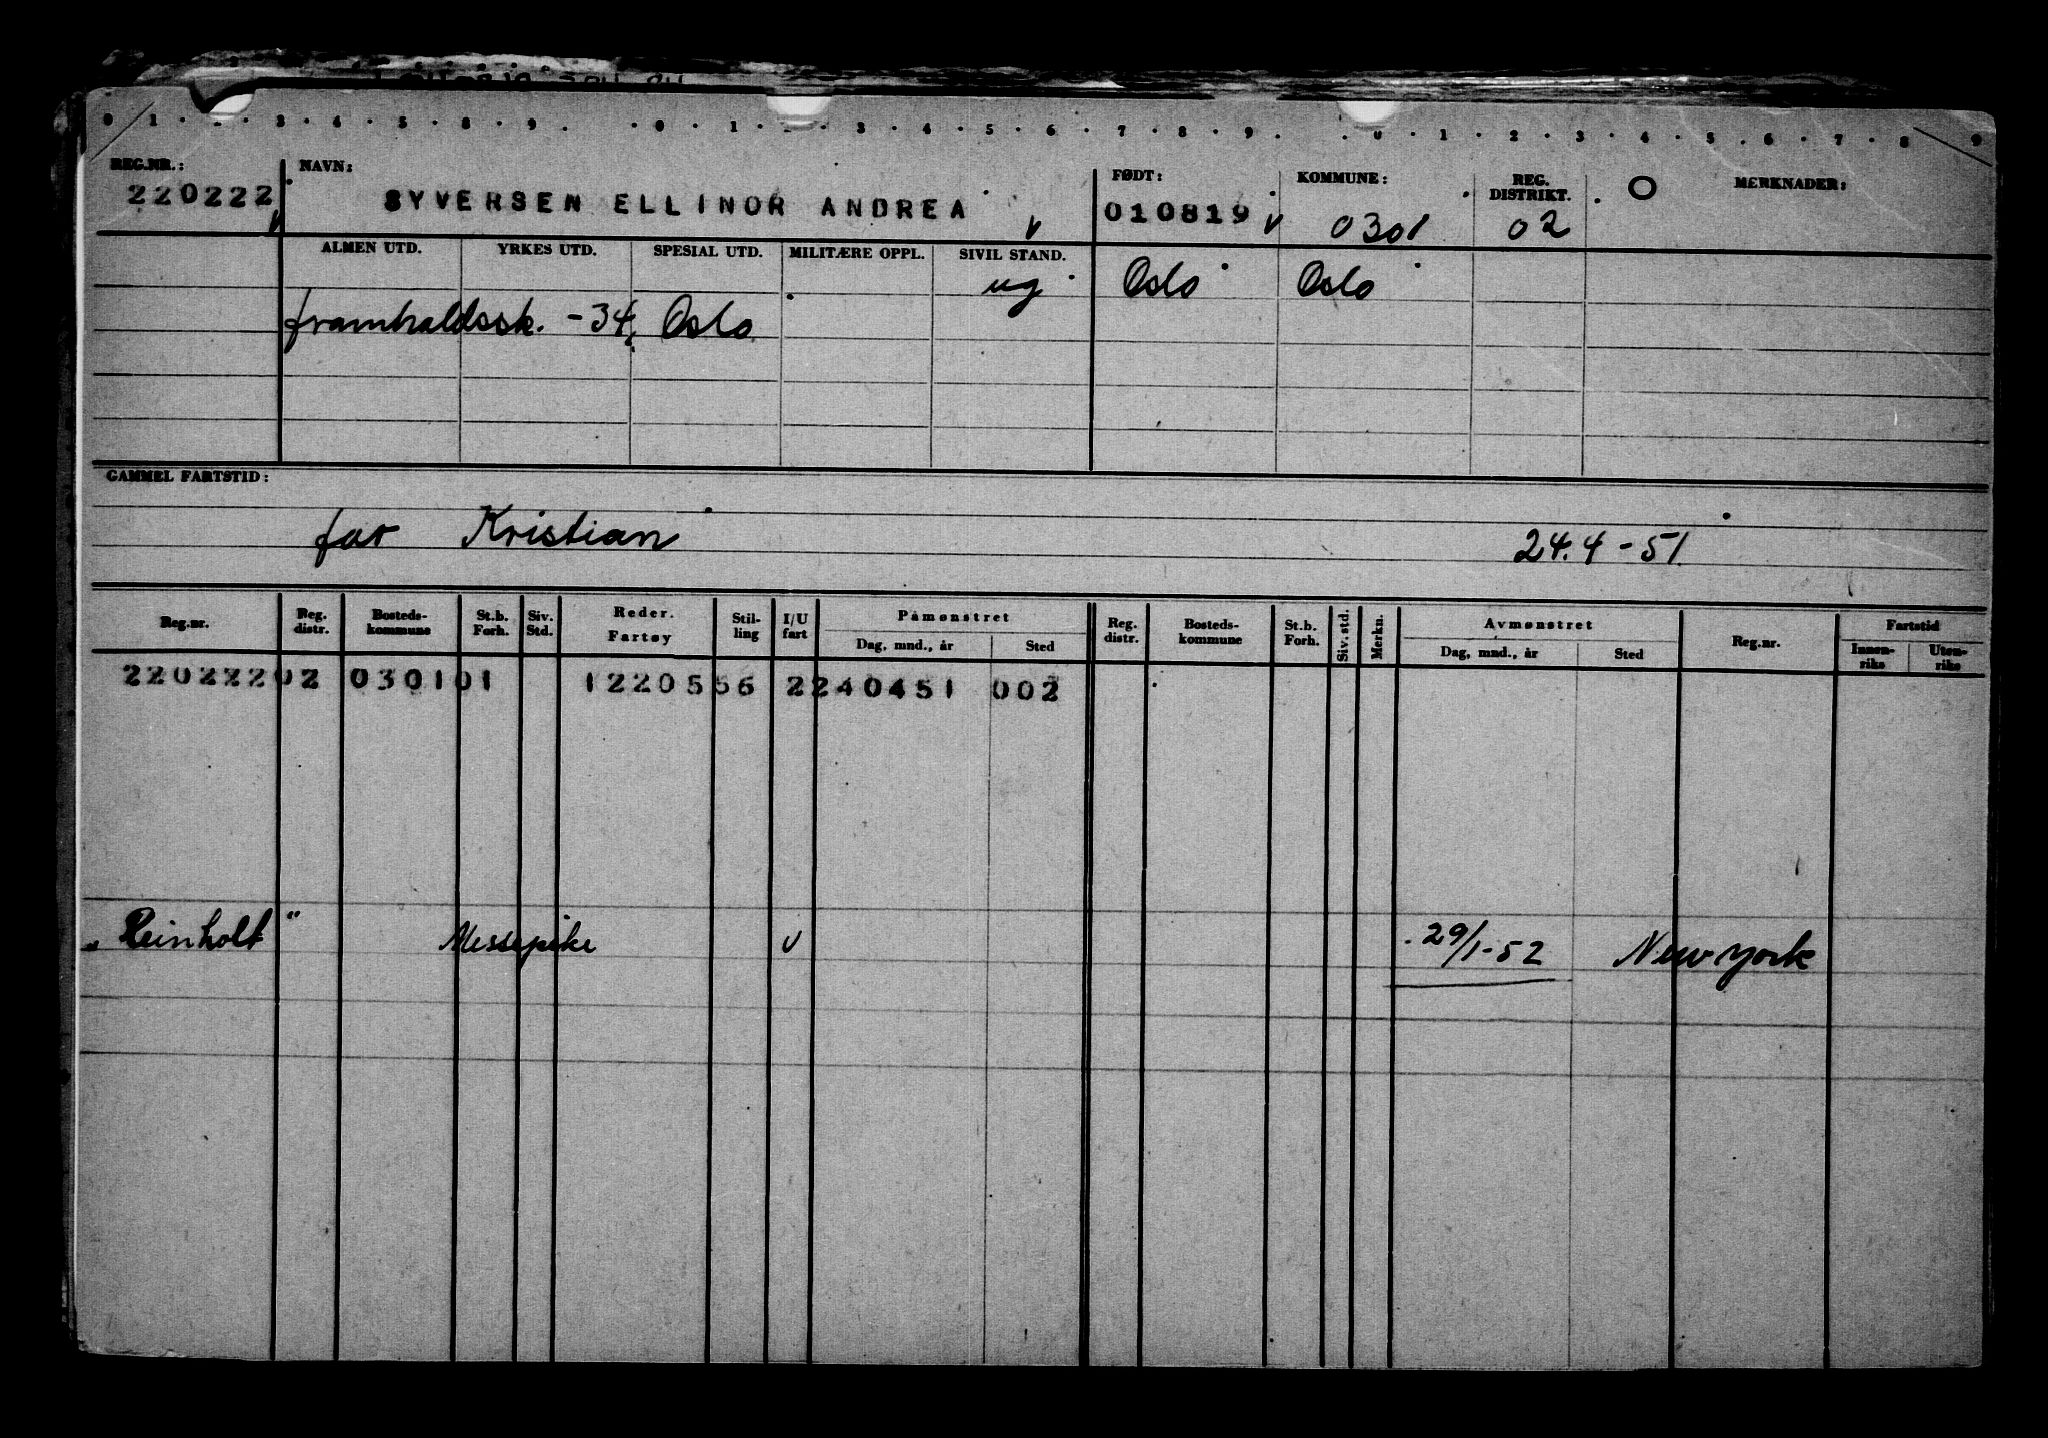 0 1 3 4 5 8 9 0 1 3 4 5 6 7 8 9 0 1 2 3 4 5 6 7 8 9
REG.NR.: NAVN: FØDT: KOMMUNE: REG. DISTRIKT. O MERKNADER:
220222 SYVERSEN ELLINOR ANDREA 010819 0301 02
ALMEN UTD. YRKES UTD. SPESIAL UTD. MILITÆRE OPPL. SIVIL STAND.
ug Oslo Oslo
framhaldssk. -34, Oslo
GAMMEL FARTSTID:
far Kristian 24.4-51.
Reg.nr. Reg. distr. Bosteds-kommune St.b. Forh. Siv. Std. Reder. Fartøy Stil-ling I/U fart Påmønstret Dag, mnd., år Sted Reg. distr. Bosteds-kommune St.b. Forh. Siv. std. Merkn. Avmønstret Dag, mnd., år Sted Reg.nr. Fartstid Innen-riks Uten-riks
22022202 030101 1220556 2240451 002
„Reinholt" Messepike U 29/1-52 New York